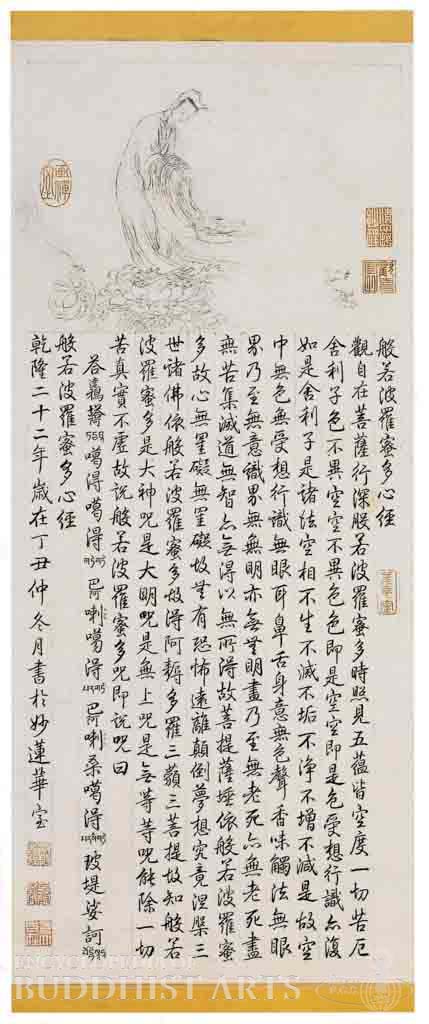 般若波羅蜜多心經
觀自在菩薩行深般若波羅蜜多時照見五蘊皆空度一切苦厄
舍利子色不異空空不異色色即是空空即是色受想行識亦復
如是舍利子是諸法空相不生不滅不垢不淨不增不減是故空
中無色無受想行識無眼耳鼻舌身意無色聲香味觸法無眼
界乃至無意識界無無明亦無無明盡乃至無老死亦無老死盡
無苦集滅道無智亦無得以無所得故菩提薩埵依般若波羅蜜
多故心無罣礙無罣礙故無有恐怖遠離顛倒夢想究竟涅槃三
世諸佛依般若波羅蜜多故得阿耨多羅三藐三菩提故知般若
波羅蜜多是大神咒是大明咒是無上咒是無等等咒能除一切
苦真實不虛故說般若波羅蜜多咒即說咒曰
噶得噶得巴阿喇噶得巴阿喇桑噶得玻提娑訶
般若波羅蜜多心經
乾隆二十二年歲在丁丑仲冬月書於妙蓮華室
ENCYCLOPEDIA OF
BUDDHIST ARTS